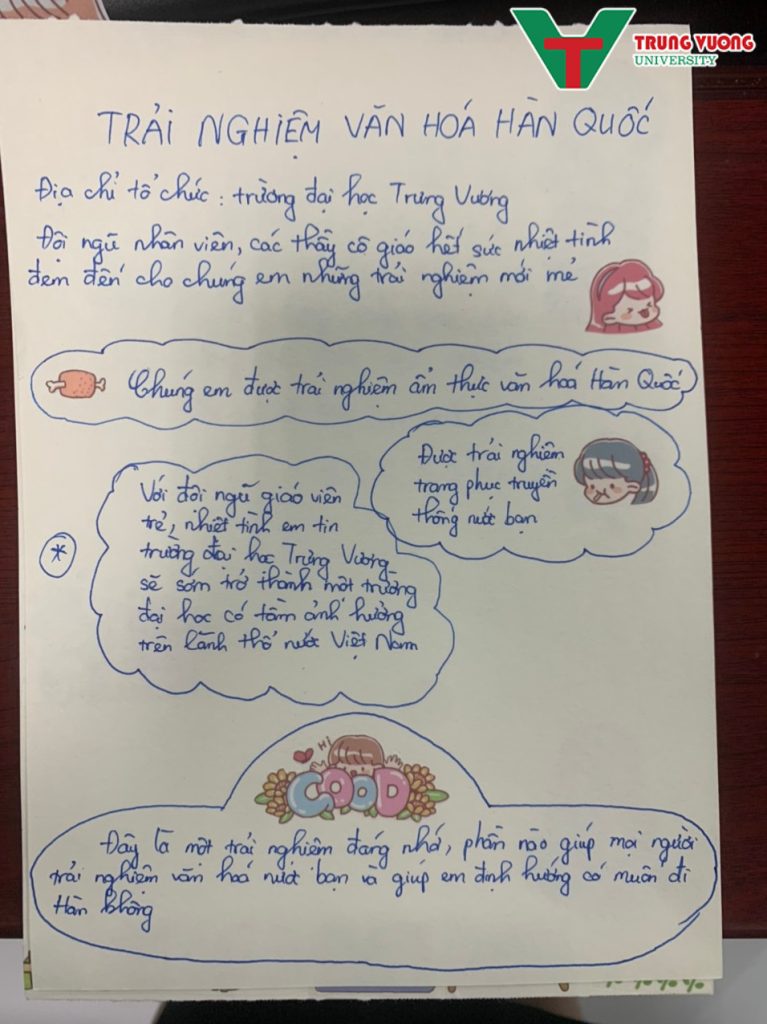 TRUNG VUONG
UNIVERSITY
TRẢI NGHIỆM VĂN HOÁ HÀN QUỐC
Địa chỉ tổ chức : trường đại học Trưng Vương
Đội ngũ nhân viên, các thầy cô giáo hết sức nhiệt tình
đem đến cho chúng em những trải nghiệm mới mẻ
Chúng em được trải nghiệm ẩm thực văn hoá Hàn Quốc
Được trải nghiêm
trang phục truyền
thống nước bạn
Với đôi ngũ giáo viên
trẻ, nhiệt tình em tin
trường đại học Trưng Vương
sẽ sớm trở thành một trường
đại học có tầm ảnh hưởng
trên lãnh thổ nước Việt Nam
*
Hi
GOOD
Đây là một trải nghiêm đáng nhớ, phần nào giúp mọi người
trải nghiệm văn hoá nước bạn và giúp em định hướng có muốn đi
Hàn không